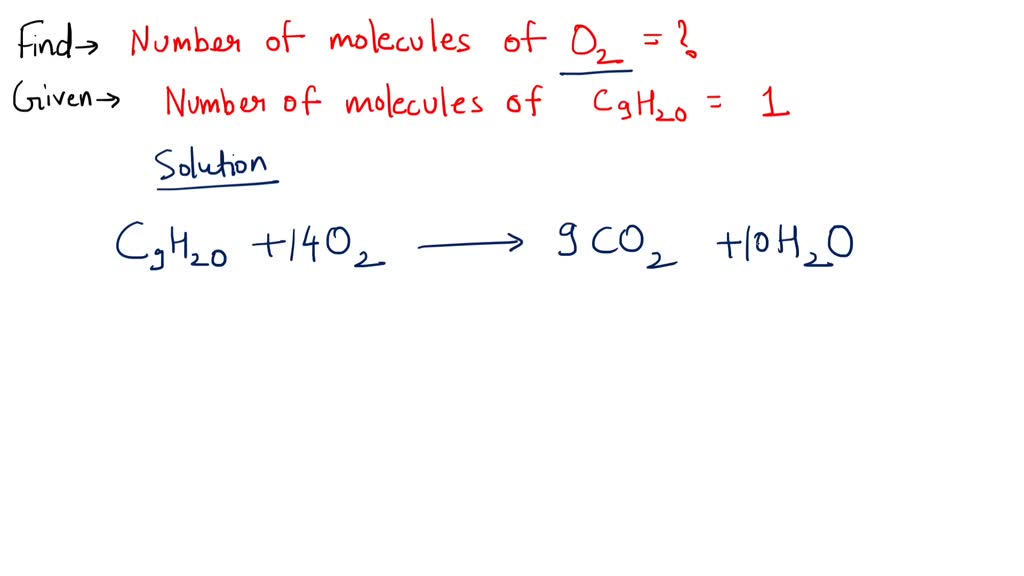 Find→ Number of molecules of O₂ = ?
Given→ Number of molecules of C₉H₂₀ = 1
Solution
C₉H₂₀ + 14O₂ ⟶ 9CO₂ + 10H₂O